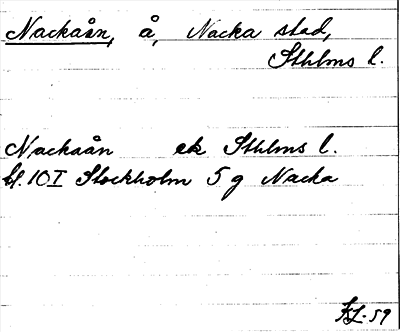 Nackaån, å, Nacka stad,
Sthlms l.
Nackaån ek Sthlms l.
bl. 10I Stockholm 5 g Nacka
-59